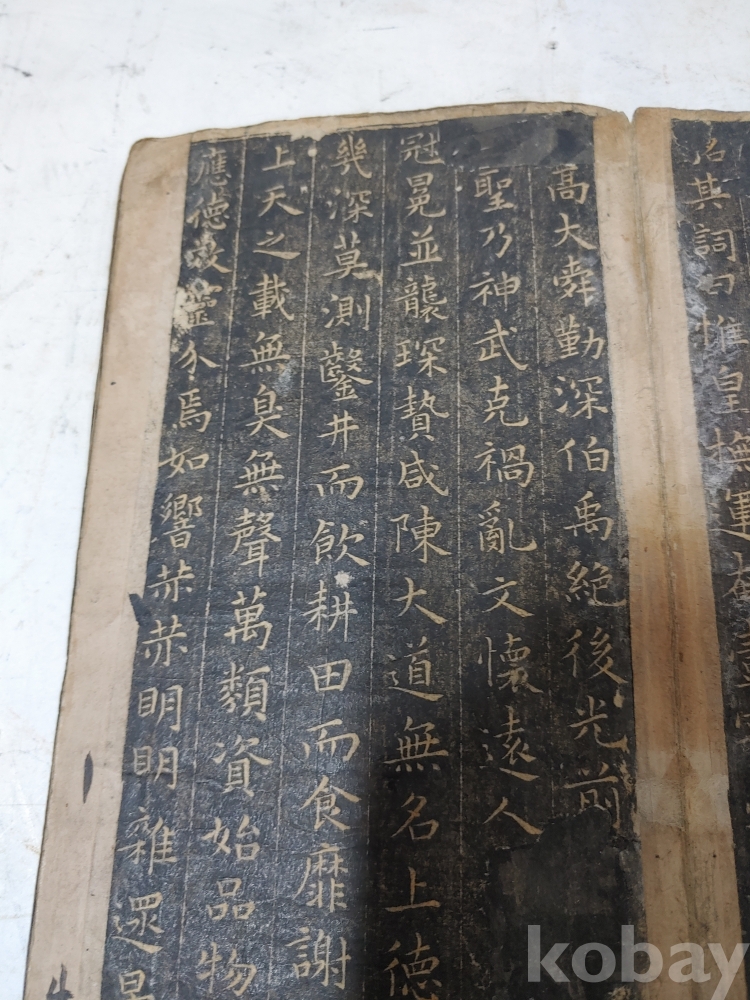 其詞曰惟皇撫運奄壹
高大舜勤深伯禹絕後光前
聖乃神武克禍亂文懷遠人
冠冕並襲琛贄咸陳大道無名上德
幾深莫測鑿井而飲耕田而食靡謝
上天之載無臭無聲萬類資始品物
應德效靈介焉如響赫赫明明雜遝景
kobay